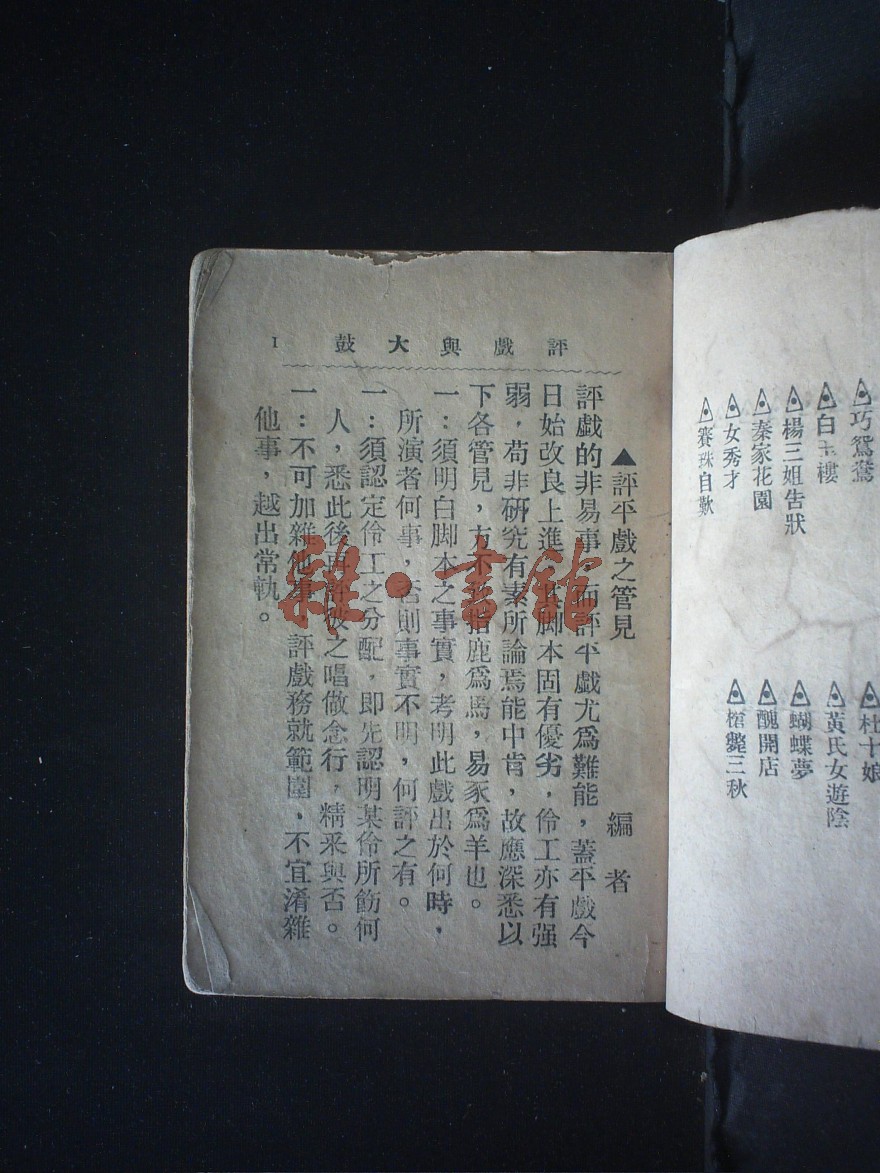 ▲巧鴛鴦
▲白玉樓
▲楊三姐告狀
▲秦家花園
▲女秀才
▲賽珠自歎
▲杜十娘
▲黃氏女遊陰
▲蝴蝶夢
▲醜開店
▲棺斃三秋
評戲與大鼓 1
▲評平戲之管見 編者
評戲的非易事,而評平戲尤爲難能,蓋平戲今
日始改良上進,脚本固有優劣,伶工亦有强
弱,苟非研究有素所論焉能中肯,故應深悉以
下各管見,方不指鹿爲馬,易豕爲羊也。
一:須明白脚本之事實,考明此戲出於何時,
所演者何事,否則事實不明,何評之有。
一:須認定伶工之分配,即先認明某伶所飾何
人,悉此後再評彼之唱做念行,精釆與否。
一:不可加雜他事,評戲務就範圍,不宜淆雜
他事,越出常軌。
雜·書館